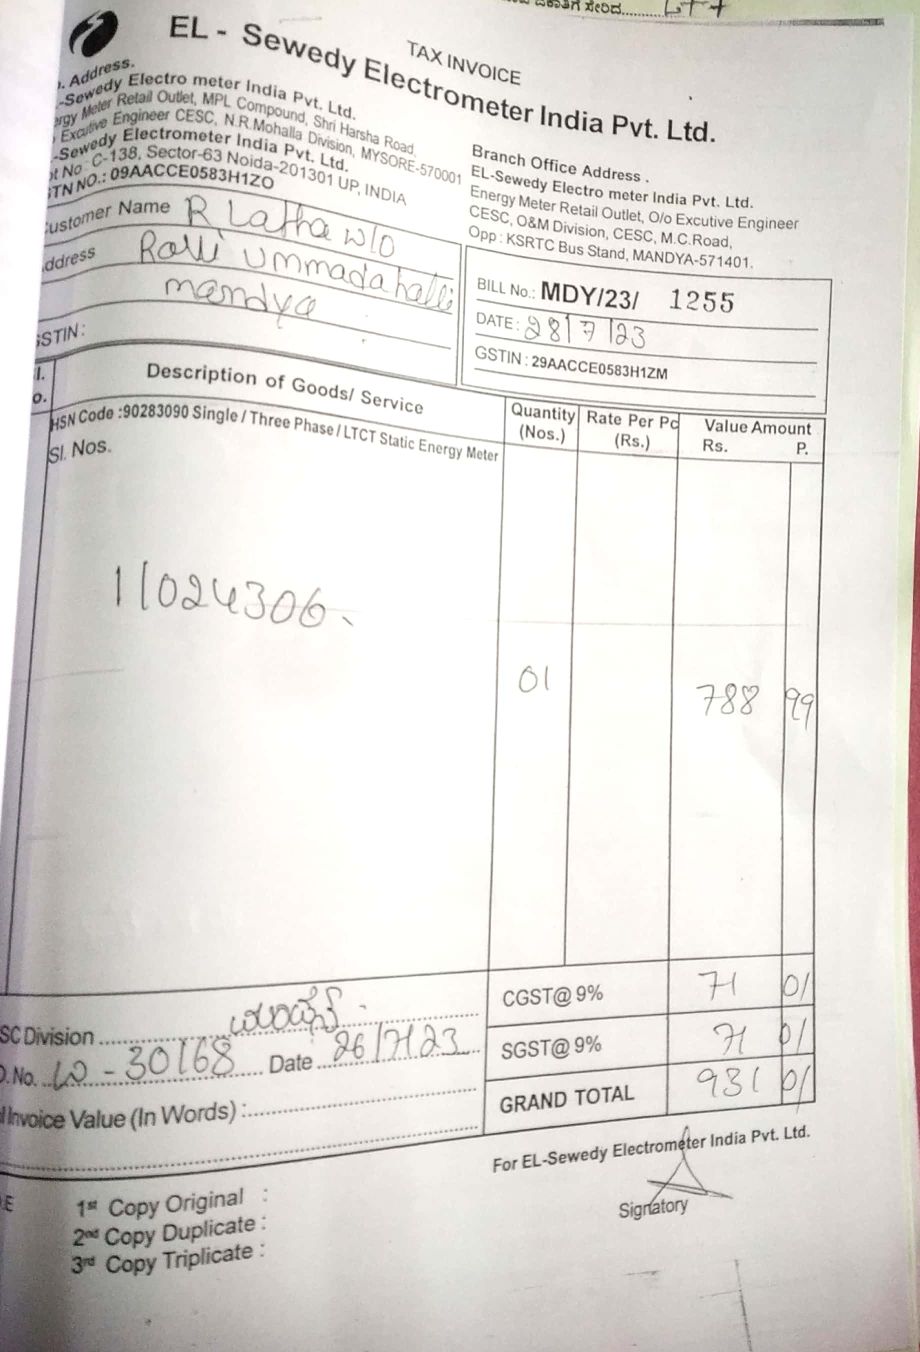 ಸೇರಿದ..........
TAX INVOICE
EL - Sewedy Electrometer India Pvt. Ltd.
. Address.
-Sewedy Electro meter India Pvt. Ltd.
ergy Meter Retail Outlet, MPL Compound, Shri Harsha Road,
Excutive Engineer CESC, N.R.Mohalla Division, MYSORE-570001
-Sewedy Electrometer India Pvt. Ltd.
ot No - C-138, Sector-63 Noida-201301 UP, INDIA
STN NO.: 09AACCE0583H1ZO
Branch Office Address .
EL-Sewedy Electro meter India Pvt. Ltd.
Energy Meter Retail Outlet, O/o Excutive Engineer
CESC, O&M Division, CESC, M.C.Road,
Opp : KSRTC Bus Stand, MANDYA-571401.
ustomer Name R Latha W/O
ddress Ravi Ummadahalli
mandya
GSTIN :
BILL No.: MDY/23/ 1255
DATE : 28/7/23
GSTIN : 29AACCE0583H1ZM
l.
o.
Description of Goods/ Service
Quantity
(Nos.)
Rate Per Pc
(Rs.)
Value Amount
Rs. P.
HSN Code :90283090 Single / Three Phase / LTCT Static Energy Meter
Sl. Nos.
11024306
01
788 99
CGST@ 9% 71 01
SGST@ 9% 71 01
GRAND TOTAL 931 01
SC Division ..........
O.No. 30168 Date 26/7/23
l Invoice Value (In Words) :
For EL-Sewedy Electrometer India Pvt. Ltd.
Signatory
E
1st Copy Original :
2nd Copy Duplicate :
3rd Copy Triplicate :